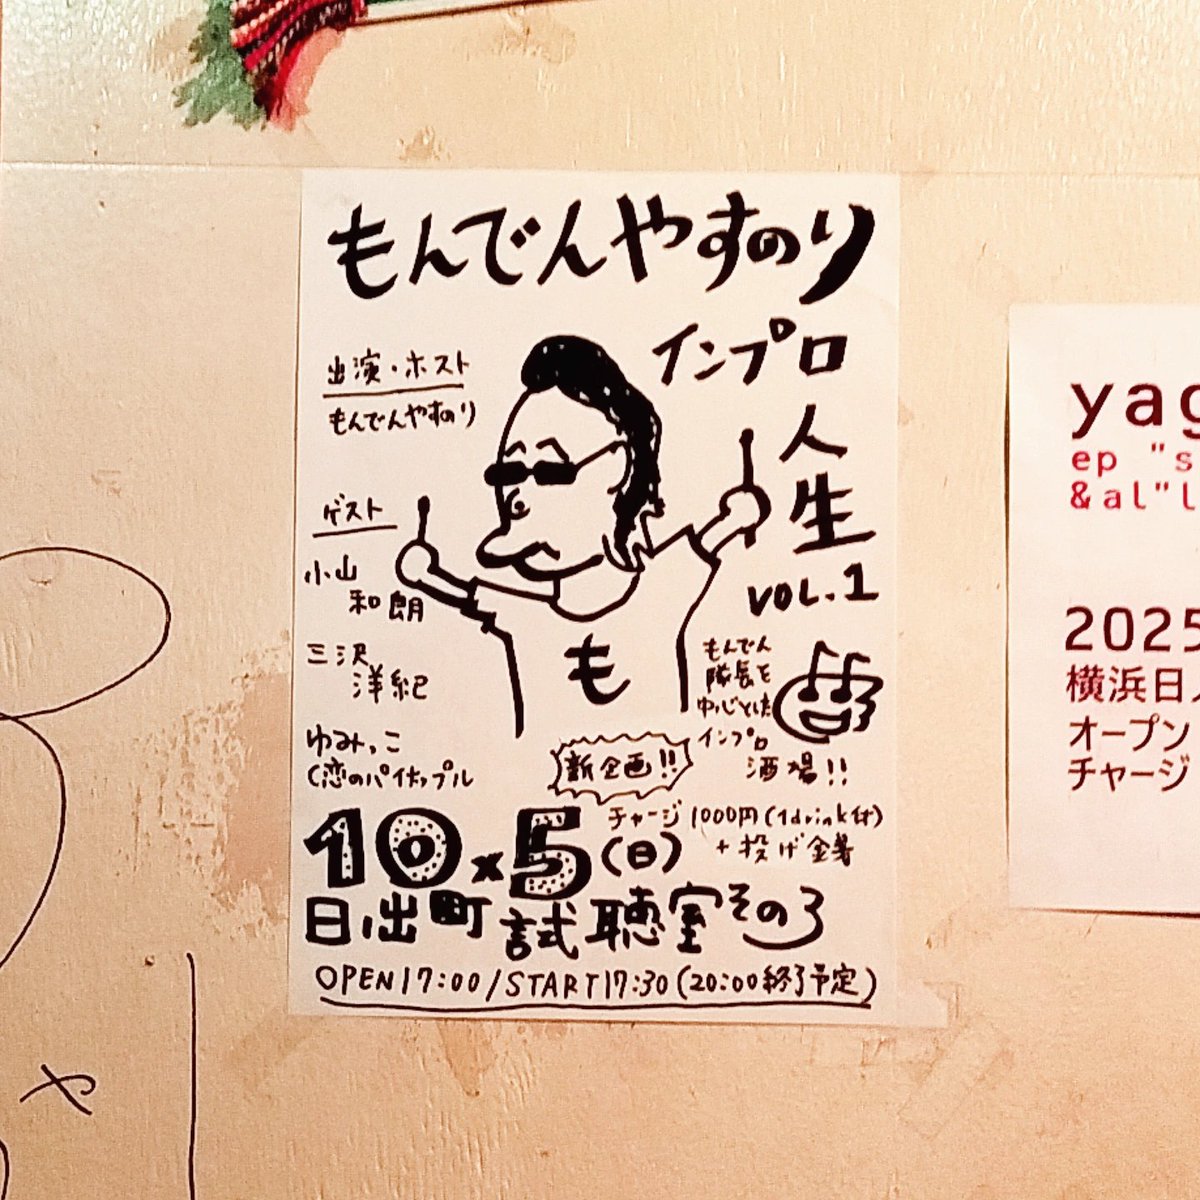 もんでんやすのり
インプロ
人生
VOL.1
出演・ホスト
もんでんやすのり
ゲスト
小山
和朗
三沢
洋紀
ゆみっこ
(恋のパイナップル
も
もんでん
隊長を
中心とした
インプロ
酒場!!
新企画!!
チャージ 1000円(1drink付)
+投げ銭
10×5(日)
日ノ出町 試聴室その3
OPEN17:00/START17:30(20:00終了予定)
yag
ep "s
&al"l
2025
横浜日ノ
オープン
チャージ
や